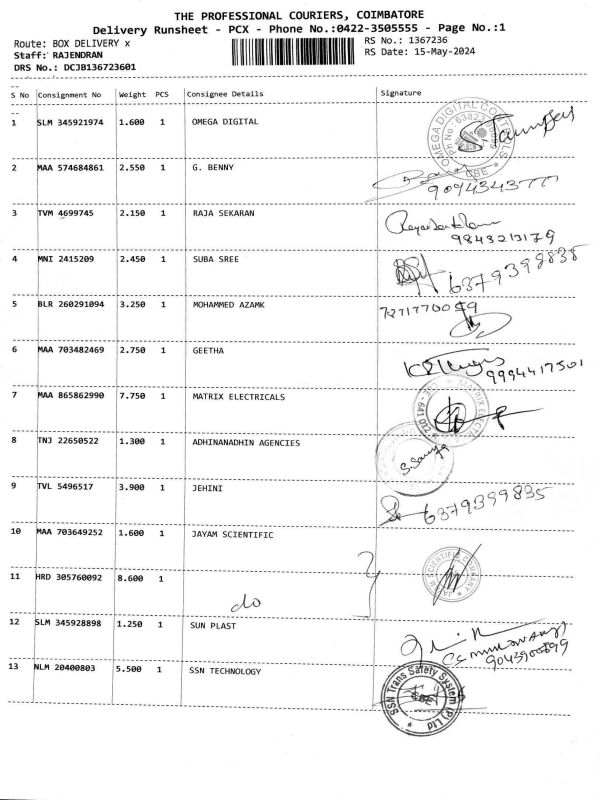 THE PROFESSIONAL COURIERS, COIMBATORE
Delivery Runsheet - PCX - Phone No.:0422-3505555 - Page No.:1
Route: BOX DELIVERY x RS No.: 1367236
Staff: RAJENDRAN RS Date: 15-May-2024
DRS No.: DCJB136723601
S No Consignment No Weight PCS Consignee Details Signature
1 SLM 345921974 1.600 1 OMEGA DIGITAL
OMEGA DIGITAL CONTROLS CBE
2 MAA 574684861 2.550 1 G. BENNY
3 TVM 4699745 2.150 1 RAJA SEKARAN
9843213179
4 MNI 2415209 2.450 1 SUBA SREE
6379399835
5 BLR 260291094 3.250 1 MOHAMMED AZAMK
6 MAA 703482469 2.750 1 GEETHA
9994417501
7 MAA 865862990 7.750 1 MATRIX ELECTRICALS
8 TNJ 22650522 1.300 1 ADHINANADHIN AGENCIES
9 TVL 5496517 3.900 1 JEHINI
6379399835
10 MAA 703649252 1.600 1 JAYAM SCIENTIFIC
SCIENTIFIC COMPANY
11 HRD 305760092 8.600 1
do
12 SLM 345928898 1.250 1 SUN PLAST
13 NLM 20400803 5.500 1 SSN TECHNOLOGY
SSN Trans Safety System (P) Ltd CBE